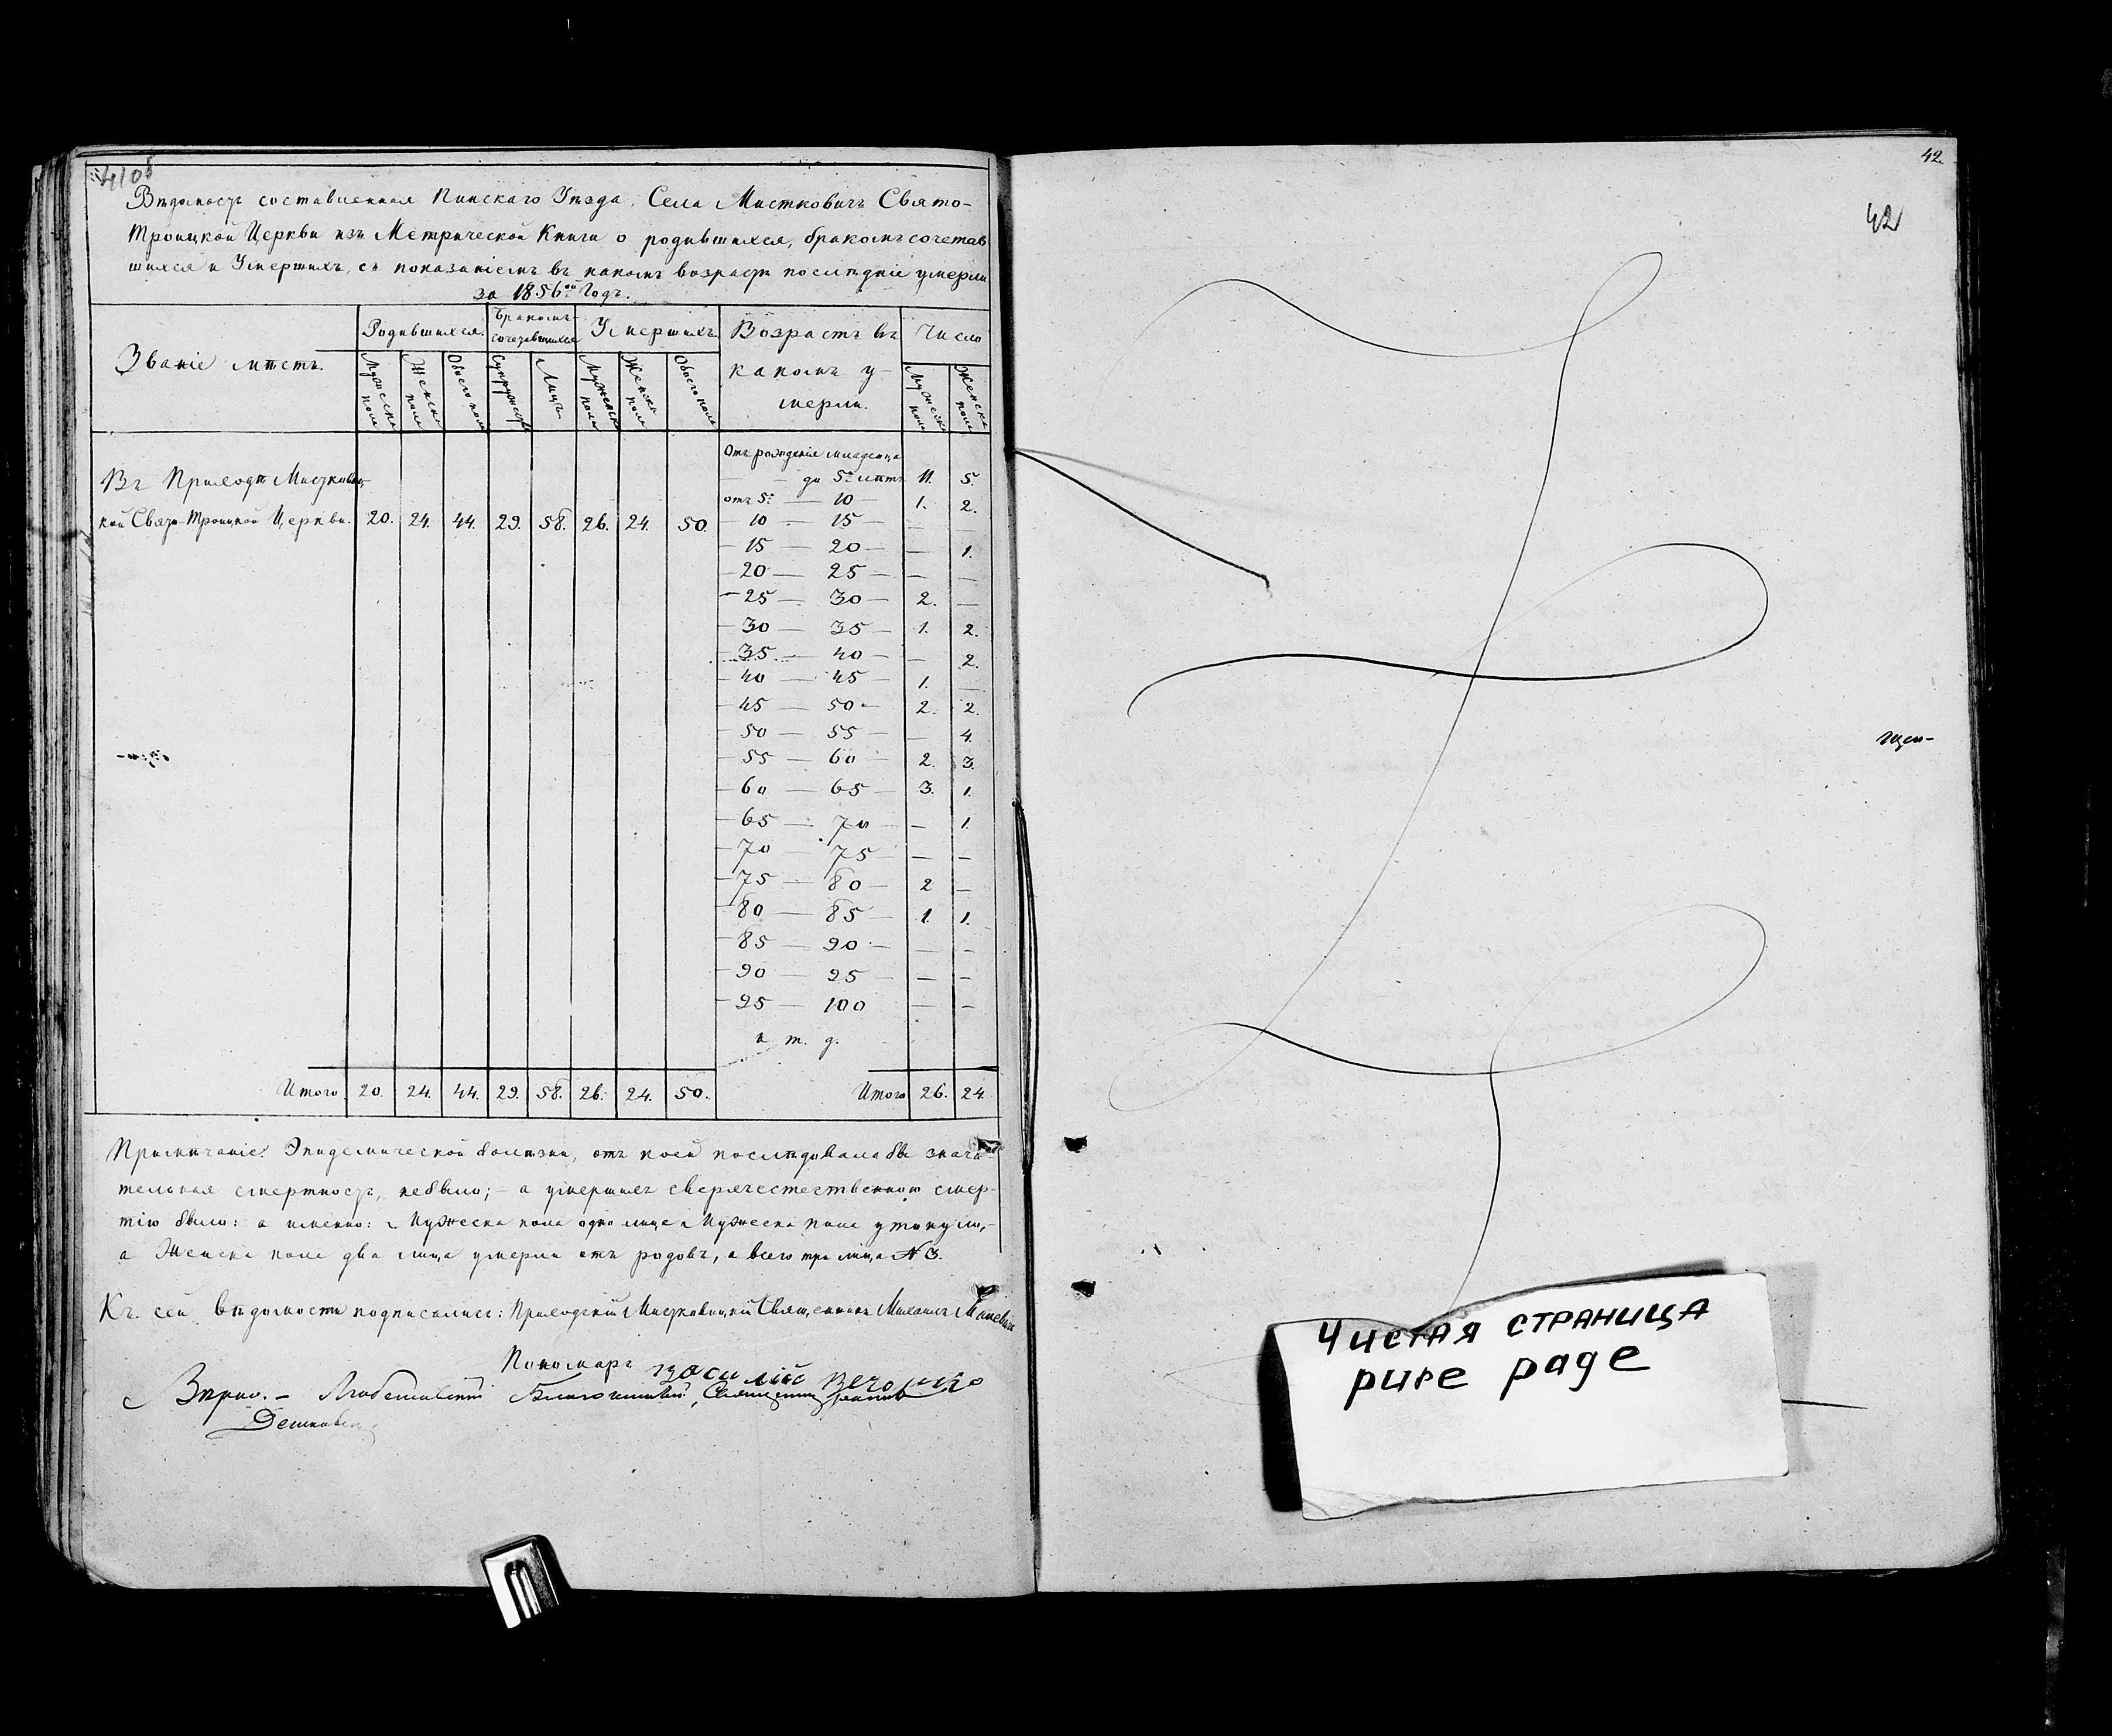 Вѣдомость составленная Пинскаго Уѣзда, Села Мистковичъ Свято-
Троицкой Церкви изъ Метрической Книги о родившихся, бракомъ сочетав
шихся и Умершихъ, съ показаніемъ въ какомъ возрастѣ послѣдніе умерли
за 1856ой Годъ.
Званіе мѣстъ. Родившихся. Бракомъ сочетавшихся Умершихъ Возрастъ въ какомъ у-мерли. Число
Мужеска пола Женска пола Обоего пола Супружествъ Лицъ Мужеска пола Женска пола Обоего пола Мужеска пола Женска пола
Отъ рожденія младенца
Въ Приходѣ Мистковиц- до 5ти лѣтъ 11. 5.
отъ 5. — 10 — 1. 2.
кой Свято-Троицкой Церкви. 20. 24. 44. 29. 58. 26. 24. 50. — 10 — 15 — — —
— 15 — 20 — — 1.
— 20 — 25 — — —
— 25 — 30 — 2. —
— 30 — 35 — 1. 2.
— 35 — 40 — — 2.
— 40 — 45 — 1. —
— 45 — 50 — 2. 2.
— 50 — 55 — — 4.
— 55 — 60 — 2. 3.
— 60 — 65 — 3. 1.
— 65 — 70 — — 1.
— 70 — 75 — — —
— 75 — 80 — 2 —
— 80 — 85 — 1. 1.
— 85 — 90 — — —
— 90 — 95 — — —
— 95 — 100 — —
и т. д.
Итого 20. 24. 44. 29. 58. 26. 24. 50. Итого 26. 24.
Примѣчаніе. Эпидемической болѣзни, отъ коей послѣдовала бы значи-
тельная смертность, небыло; - а умершихъ сверхъестественною смер-
тію было: а именно: Мужеска пола одно лице Мужеска пола утонуло,-
а Женска пола два лица умерли отъ родовъ, а всего три лица № 3.
Къ сей вѣдомости подписались: Приходскій Мистковицкій Священникъ Михаилъ
Пономарь Василій
Вѣрно. - Любешовскій Благочинный, Священникъ
42.
42
Чистая страница
pure page